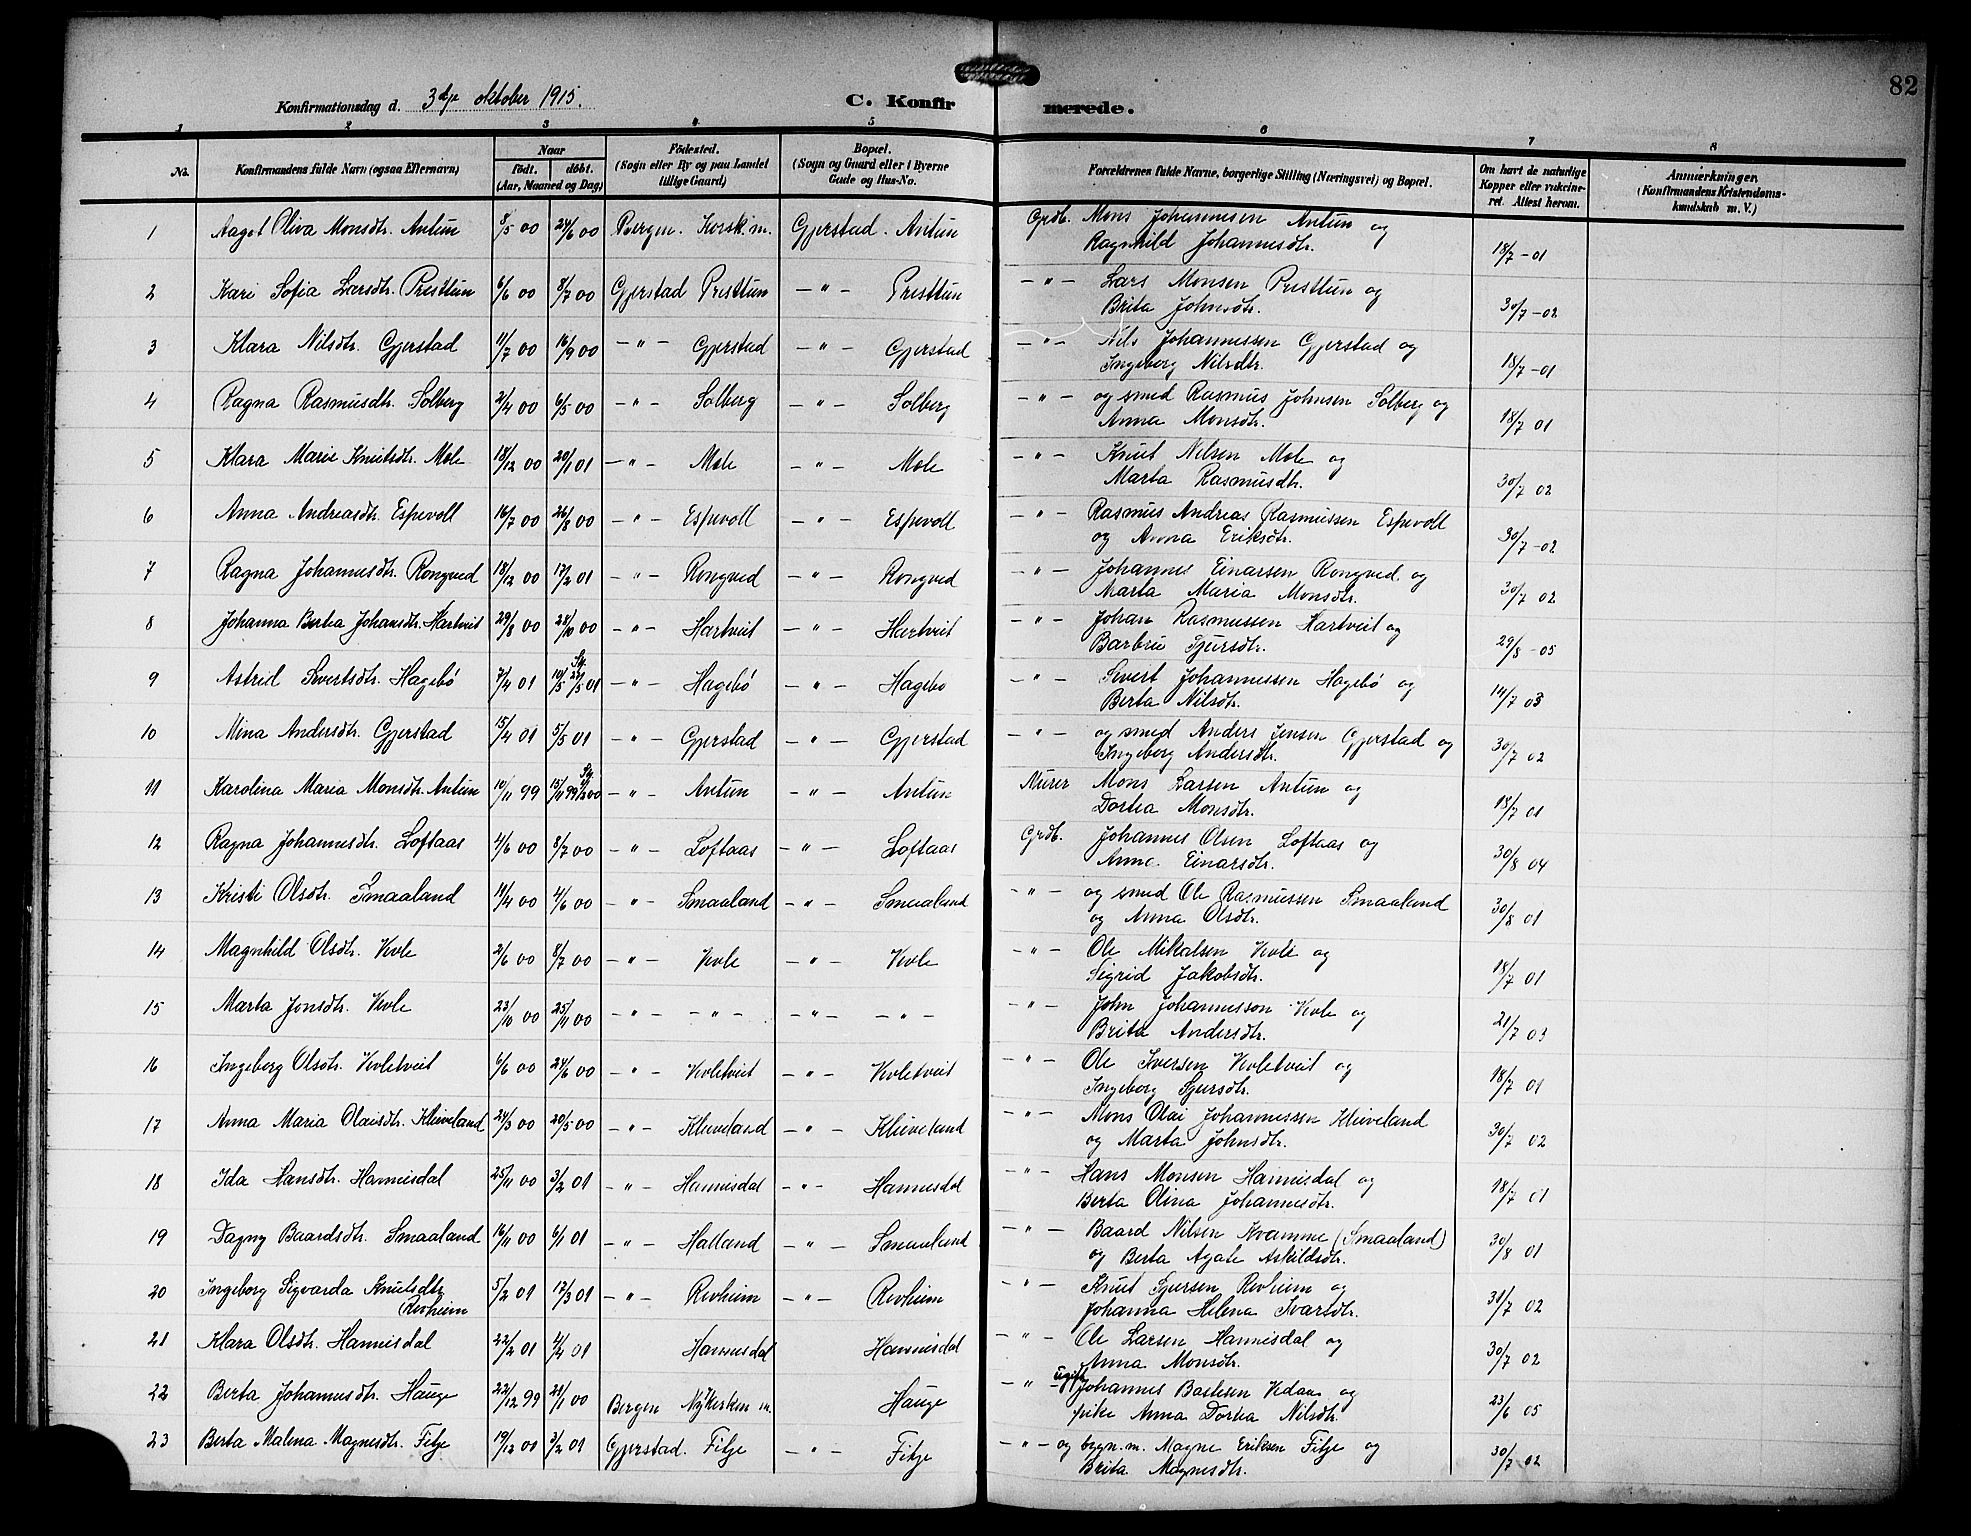 82
Konfirmationsdag d. 3dje oktober 1915.
C. Konfir merede.
1 2 3 4 5 6 7 8
No. Konfirmandens fulde Navn (ogsaa Efternavn) Naar født. døbt. (Aar, Maaned og Dag) Fødested. (Sogn eller By og paa Landet tillige Gaard) Bopæl. (Sogn og Gaard eller i Byerne Gade og Hus-No. Forældrenes fulde Navne, borgerlige Stilling (Næringsvei) og Bopæl. Om havt de naturlige Kopper eller vakcineret. Attest herom. Anmærkninger. (Konfirmandens Kristendomskundskab m. V.)
1 Aagot Oliva Monsdtr. Antun 8/5 00 24/6 00 Bergen. Korsk.m. Gjerstad. Antun Grdb. Mons Johannesen Antun og
Ragnhild Johannesdtr. 18/7 - 01
2 Kari Sofia Larsdtr. Presttun 6/6 00 8/7 00 Gjerstad Presttun - " - Presttun - " - Lars Monsen Presttun og
Brita Johnsdtr. 30/7 - 02
3 Klara Nilsdtr. Gjerstad 11/7 00 16/9 00 - " - Gjerstad - " - Gjerstad - " - Nils Johannessen Gjerstad og
Ingeborg Nilsdtr. 18/7 - 01
4 Ragna Rasmusdtr. Solberg 2/4 00 6/5 00 - " - Solberg - " - Solberg - " - og smed Rasmus Johnsen Solberg og
Anna Monsdtr. 18/7 01
5 Klara Marie Knutsdtr. Mele 18/12 00 20/1 01 - " - Mele - " - Mele - " - Knut Nilsen Mele og
Marta Rasmusdtr. 30/7 02
6 Anna Andreasdtr. Espevoll 16/7 00 26/8 00 - " - Espevoll - " - Espevoll - " - Rasmus Andreas Rasmussen Espevoll
og Anna Eriksdtr. 30/7 - 02
7 Ragna Johannesdtr. Rongved 18/12 00 17/2 01 - " - Rongved - " - Rongved - " - Johannes Einarsen Rongved og
Marta Maria Monsdtr. 30/7 02
8 Johanna Berta Johansdtr. Hartveit 29/8 00 28/10 00 - " - Hartveit - " - Hartveit - " - Johan Rasmussen Hartveit og
Barbru Sjursdtr. 29/8 - 05
9 Astrid Sivertsdtr. Hagebø 7/4 01 10/5 St. 27/5 01 - " - Hagebø - " - Hagebø - " - Sivert Johannessen Hagebø og
Berta Nilsdtr. 14/7 03
10 Mina Andersdtr. Gjerstad 15/4 01 5/5 01 - " - Gjerstad - " - Gjerstad - " - og smed Anders Jensen Gjerstad og
Ingeborg Andersdtr. 30/7 02
11 Karolina Maria Monsdtr. Antun 10/11 99 15/11 99 St. 00 - " - Antun - " - Antun Murer Mons Larsen Antun og
Dortea Monsdtr. 18/7 01
12 Ragna Johannesdtr. Loftaas 4/6 00 8/7 00 - " - Loftaas - " - Loftaas Grdb. Johannes Olsen Loftaas og
Anna Einarsdtr. 30/8 04
13 Kristi Olsdtr. Smaaland 11/4 00 4/6 00 - " - Smaaland - " - Smaaland - " - og smed Ole Rasmussen Smaaland
og Anna Olsdtr. 30/8 01
14 Magnhild Olsdtr. Vevle 2/6 00 8/7 00 - " - Vevle - " - Vevle - " - Ole Mikalsen Vevle og
Sigrid Jakobsdtr. 18/7 01
15 Marta Jonsdtr. Vevle 23/10 00 25/11 00 - " - - " - - " - - " - - " - John Johannesson Vevle og
Brita Andersdtr. 21/7 03
16 Ingeborg Olsdtr. Vevletveit 6/6 00 24/6 00 - " - Vevletveit - " - Vevletveit - " - Ole Iversen Vevletveit og
Ingeborg Sjursdtr. 18/7 01
17 Anna Maria Olaisdtr. Kleiveland 24/3 00 20/5 00 - " - Kleiveland - " - Kleiveland - " - Mons Olai Johannessen Kleiveland
og Marta Johnsdtr. 30/7 02
18 Ida Hansdtr. Hannisdal 25/11 00 3/2 01 - " - Hannisdal - " - Hannisdal - " - Hans Monsen Hannisdal og
Berta Olina Johannesdtr. 18/7 01
19 Dagny Baardsdtr. Smaaland 16/11 00 6/1 01 - " - Halland - " - Smaaland - " - Baard Nilsen Kvamme (Smaaland)
og Berta Agate Askildsdtr. 30/8 01
20 Ingeborg Sigvarda Knutsdtr. 5/2 01 12/3 01 - " - Revheim - " - Revheim - " - Knut Sjursen Revheim og
Revheim Johanna Helena Ivarsdtr. 31/7 02
21 Klara Olsdtr. Hannisdal 22/2 01 4/4 01 Hannisdal Hannisdal - " - Ole Larsen Hannisdal og
Anna Monsdtr. 30/7 02
22 Berta Johannesdtr. Hauge 22/12 99 21/1 00 Bergen Nykirken m. Hauge - " - ugift Johannes Vedaa og
pike Anna Dortea Nilsdtr. 23/6 05
23 Berta Malena Magnesdtr. Fitje 19/12 00 3/2 01 Gjerstad. Fitje - " - Fitje - " - og bygn.m. Magne Eriksen Fitje og
Brita Magnesdtr. 30/7 02